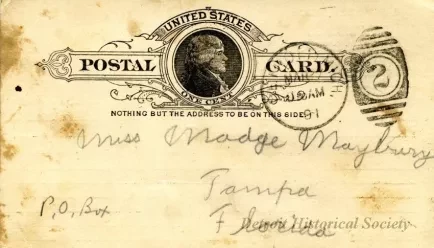 UNITED STATES
POSTAL CARD.
ONE CENT
NOTHING BUT THE ADDRESS TO BE ON THIS SIDE.
MAR
AM
91
2
Miss Madge Maybury
Tampa
P.O. Box
Florida
Detroit Historical Society